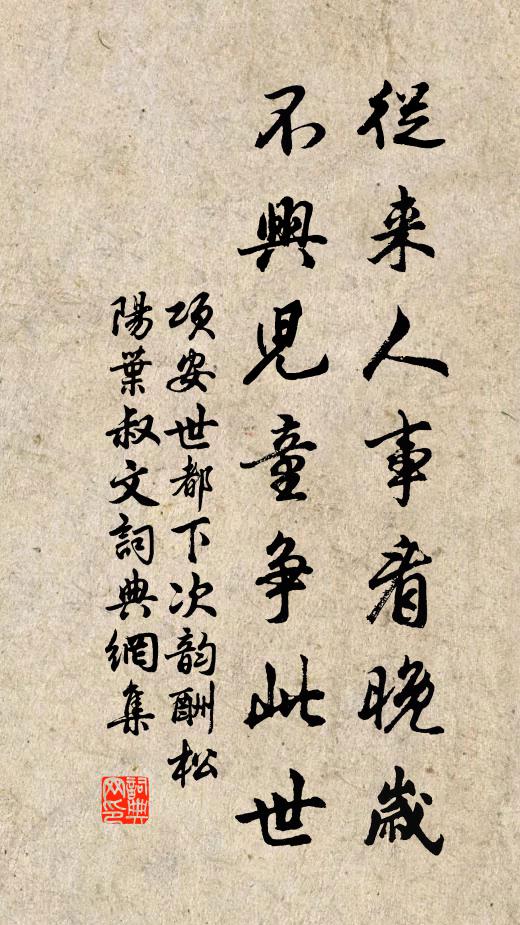 從来人事看晚歲
不興児童争此世
項安世都下次韵酬松
陽葉叔文詞典網集
詞典网印